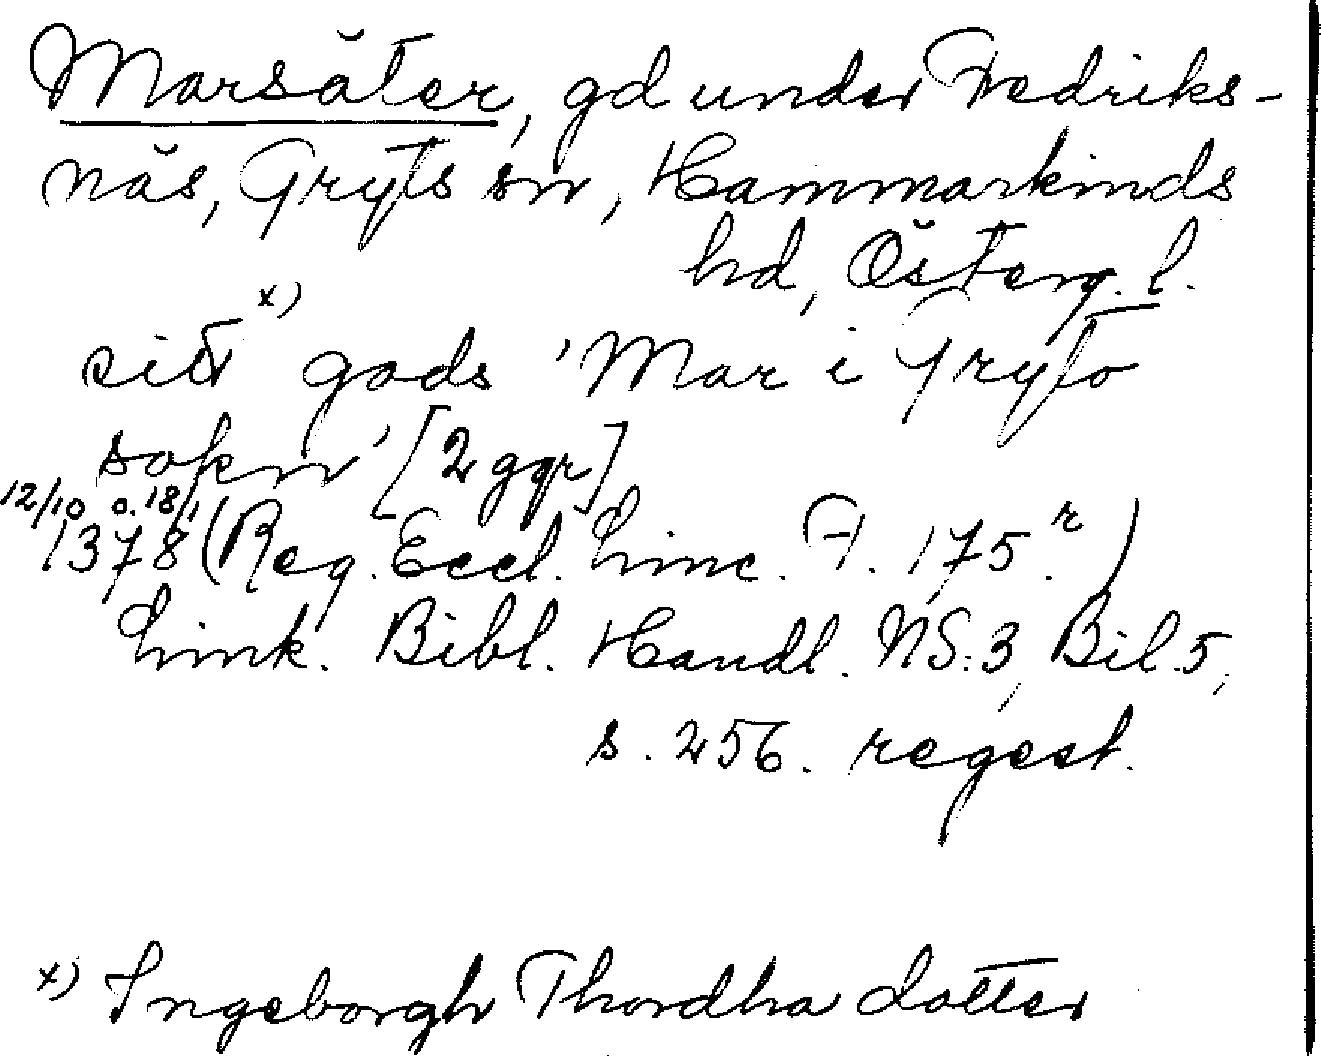 Marsäter, gd under Fredriks-
näs, Gryts sn, Hammarkinds
hd, Österg. l.
sitt x) gods 'Mar i Gryto
sokn' [2 ggr]
12/10 o. 18/1
1378 (Reg. Eccl. Linc. F. 175.r)
Link. Bibl. Handl. NS:3, Bil.5,
s. 256. regest.
x) Ingeborgh Thordha dotter